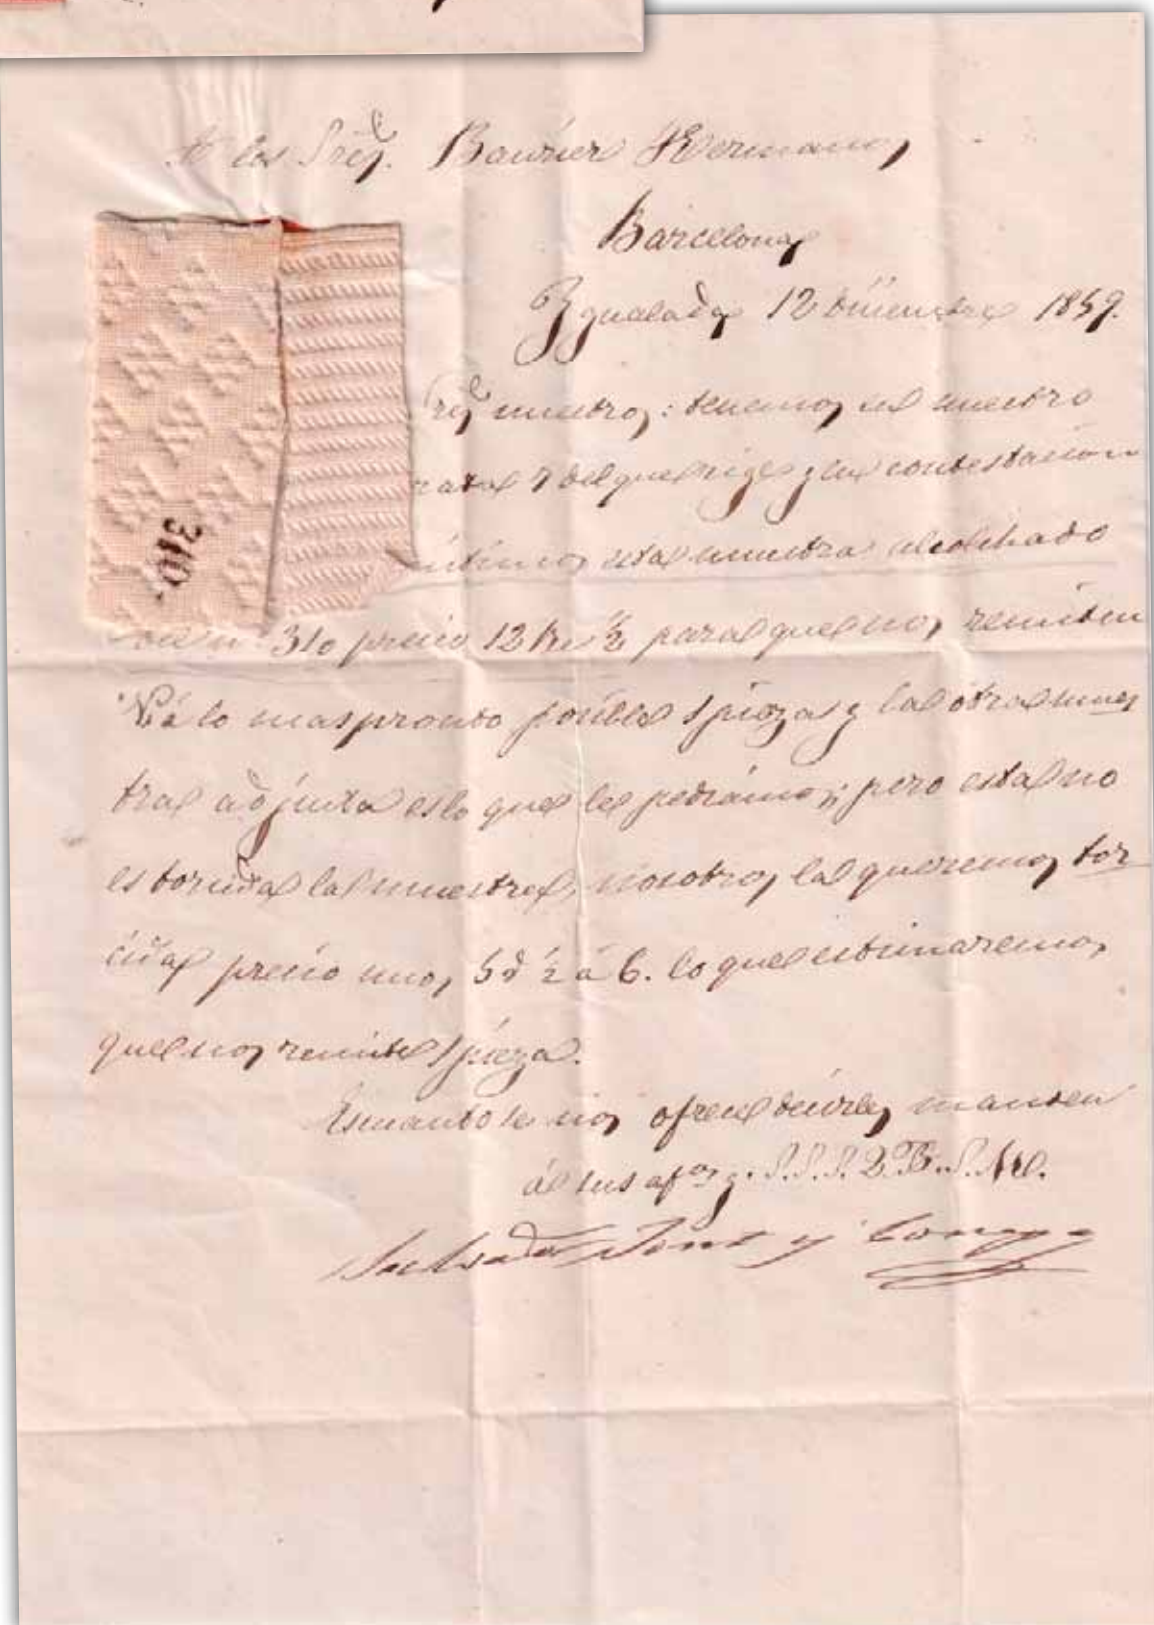 A los Sres. Baurier Hermanos
Barcelona
Ygualada 12 diciembre 1859.
310.
res nuestros: tenemos el nuestro
rata 7 del que rige y en contestacion
esta muestra alcolchado
310 precio 12 rs ½ para que nos remiten
Vs á lo mas pronto posible 1 piezas y la otra mues
tra adjunta es lo que les pediamos; pero esta no
es torcida la muestra, nosotros la queremos tor
cida precio unos 5 ½ á 6. lo que estimaremos
que nos remite 1 pieza.
Es cuanto se nos ofrece decirles manden
á sus afos y. S.S.S. Q.B.S.M.
Salvador Font y Compa